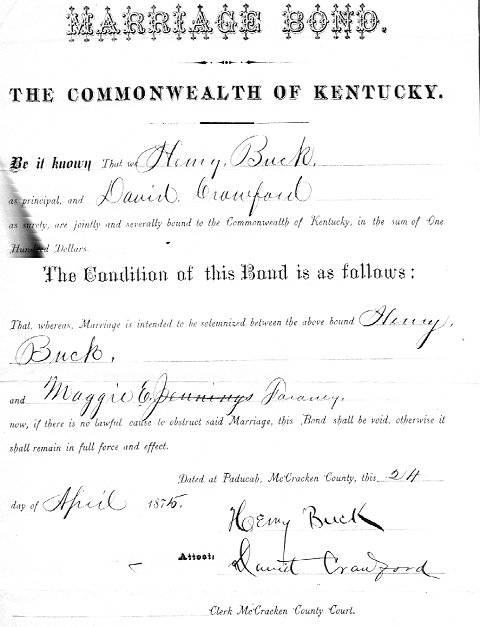 MARRIAGE BOND.
THE COMMONWEALTH OF KENTUCKY.
Be it known That we Henry. Buck.
as principal, and David. Crawford
as surety, are jointly and severally bound to the Commonwealth of Kentucky, in the sum of One
Hundred Dollars.
The Condition of this Bond is as follows:
That, whereas, Marriage is intended to be solemnized between the above bound Henry.
Buck.
and Maggie E. Jennings
now, if there is no lawful cause to obstruct said Marriage, this Bond shall be void, otherwise it
shall remain in full force and effect.
Dated at Paducah, McCracken County, this 24
day of April 1875.
Henry Buck
Attest: David Crawford
Clerk McCracken County Court.